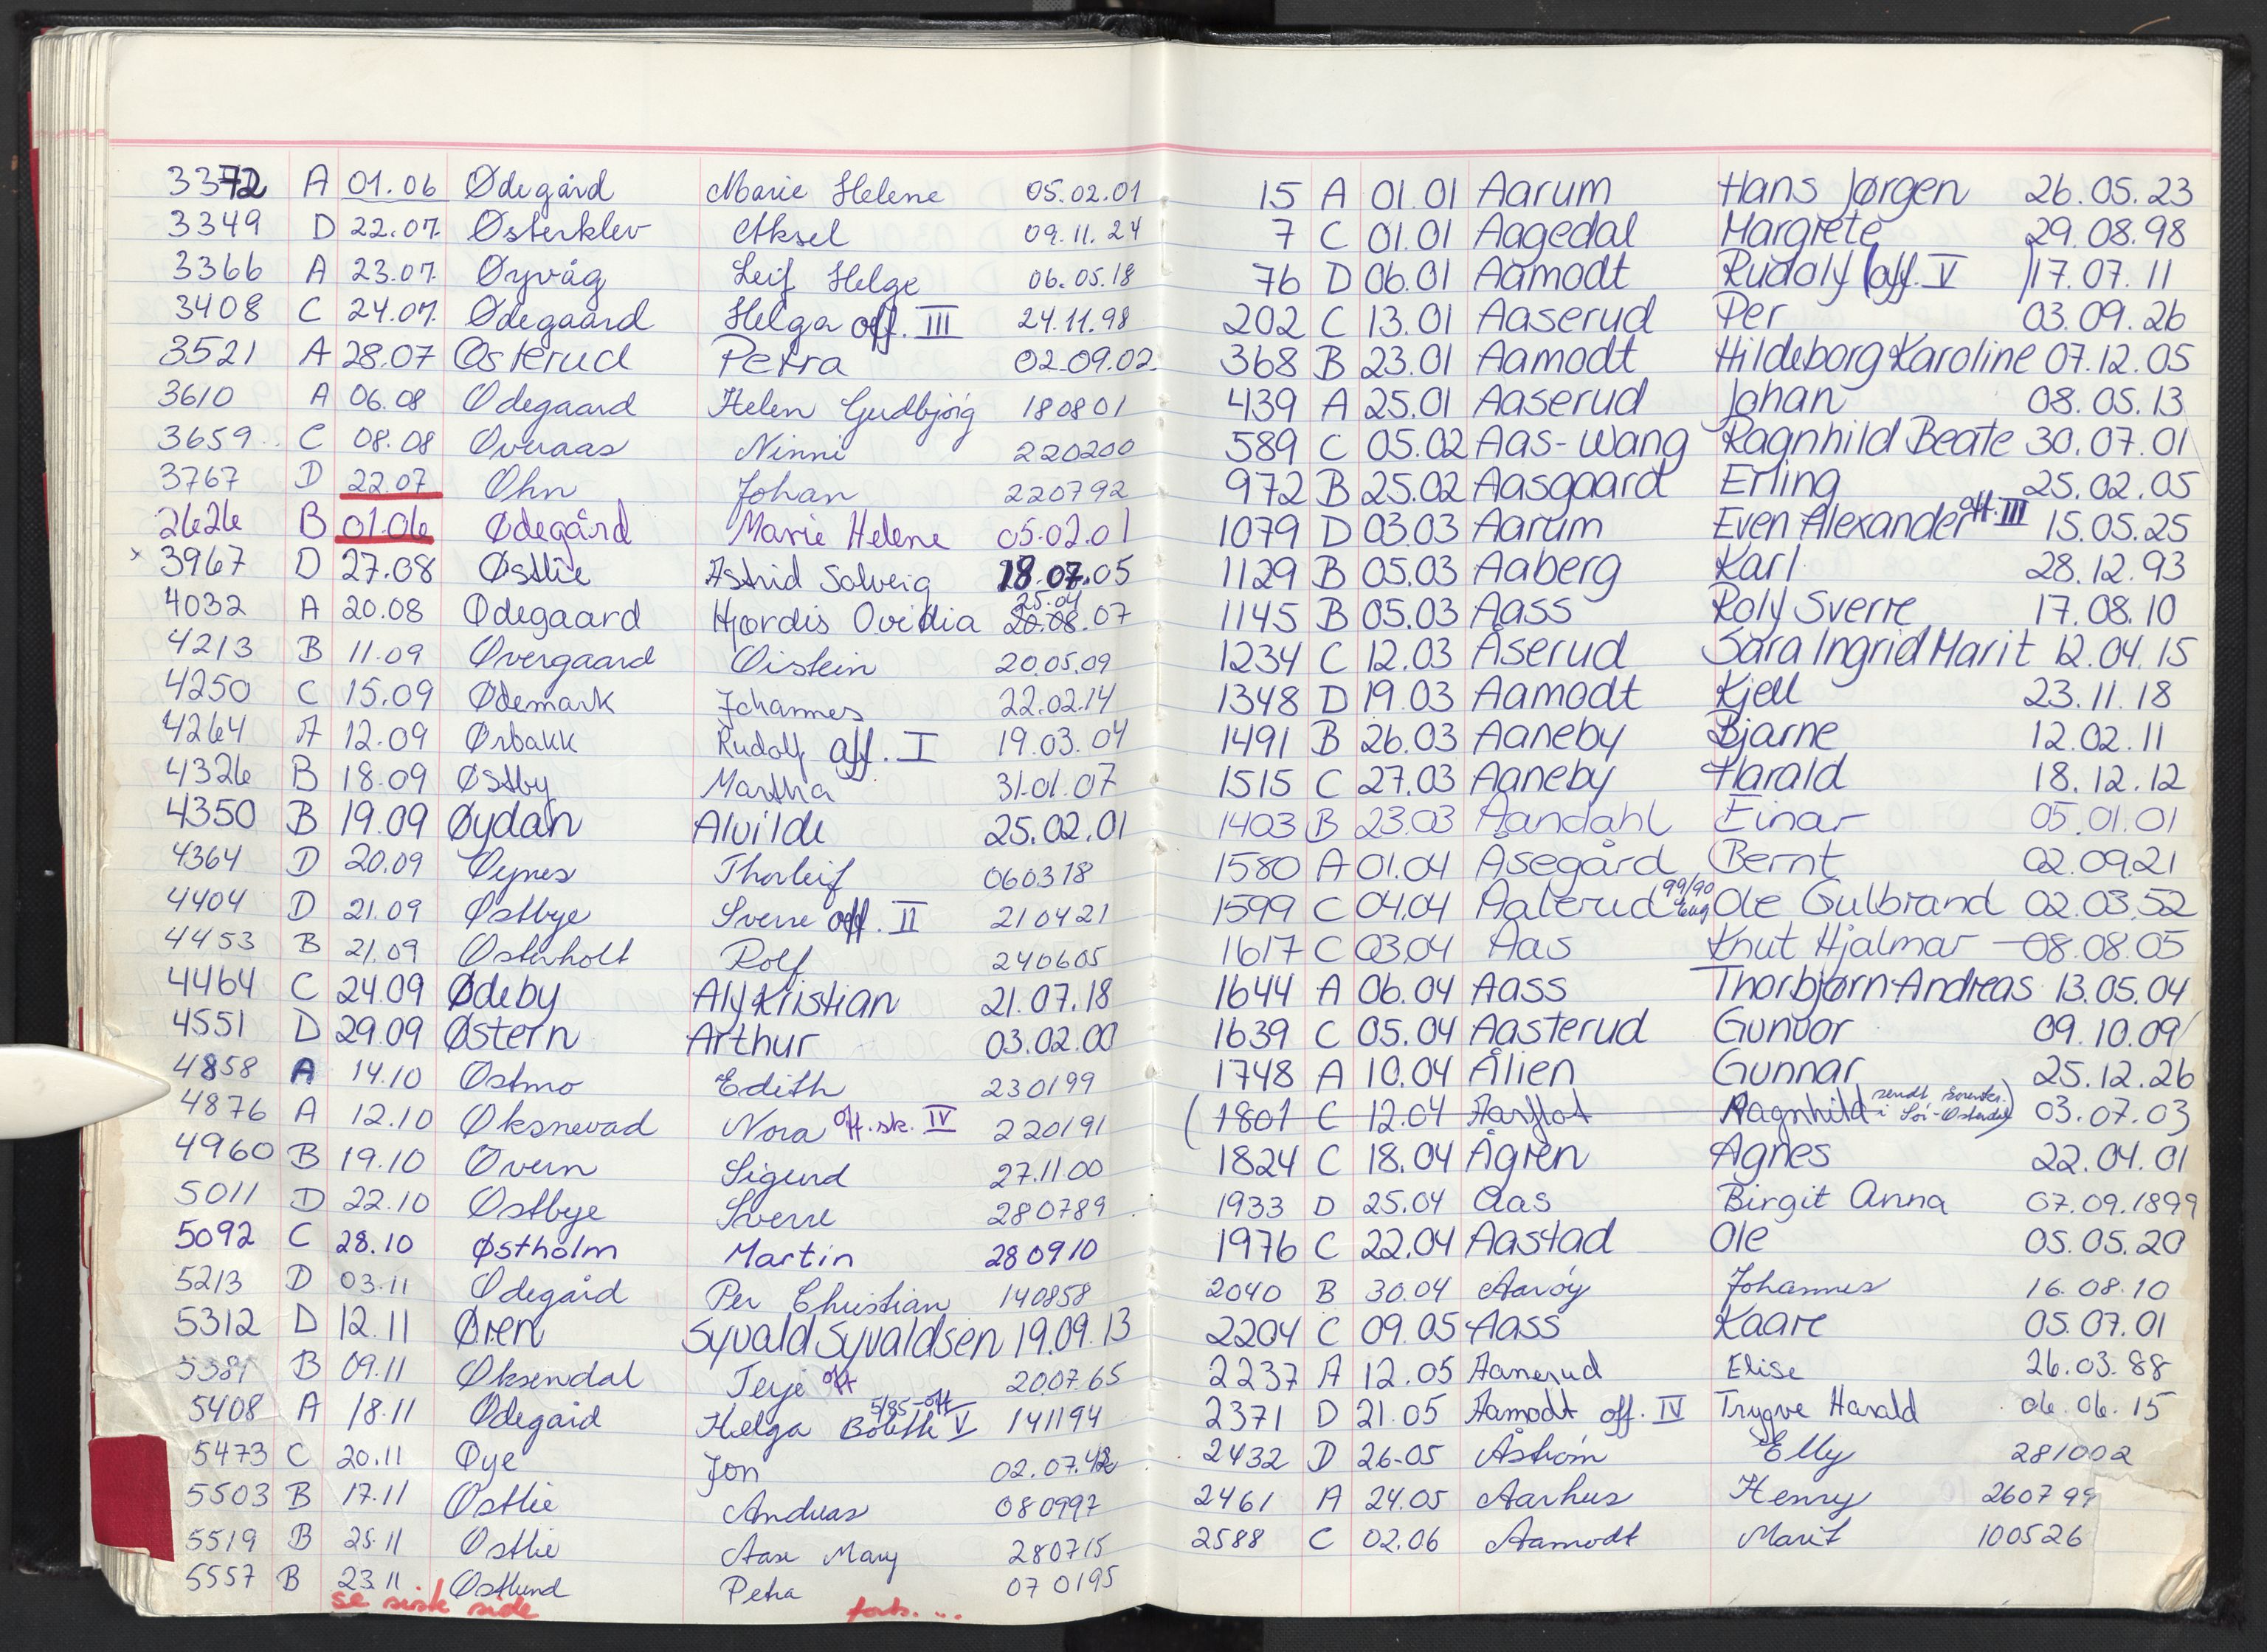 3372 A 01.06 Ødegård Marie Helene 05.02.01
3349 D 22.07. Østerklev Aksel 09.11.24
3366 A 23.07. Øyvåg Leif Helge 06.05.18
3408 C 24.07. Ødegaard Helga off. III 24.11.98
3521 A 28.07 Østerud Petra 02.09.02
3610 A 06.08 Ødegaard Helen Gudbjørg 180801
3659 C 08.08 Øveraas Ninni 220200
3767 D 22.07 Øhn Johan 220792
2626 B 01.06 Ødegård Marie Helene 05.02.01
x 3967 D 27.08 Østlie Astrid Solveig 18.07.05
4032 A 20.08 Ødegaard Hjørdis Ovidia 25.04 20.08.07
4213 B 11.09 Øvergaard Øistein 20.05.09
4250 C 15.09 Ødemark Johannes 22.02.14
4264 A 12.09 Ørbakk Rudolf off. I 19.03.04
4326 B 18.09 Østby Martha 31.01.07
4350 B 19.09 Øydan Alvilde 25.02.01
4364 D 20.09 Øynes Thorleif 060318
4404 D 21.09 Østbye Sverre off. II 210421
4453 B 21.09 Østerholt Rolf 240605
4464 C 24.09 Ødeby Alf Kristian 21.07.18
4551 D 29.09 Østern Arthur 03.02.00
4858 A 14.10 Østmo Edith 230199
4876 A 12.10 Øksnevad Nora off.sk. IV 220191
4960 B 19.10 Øvern Sigurd 27.11.00
5011 D 22.10 Østbye Sverre 280789
5092 C 28.10 Østholm Martin 280910
5213 D 03.11 Ødegård Per Christian 140858
5312 D 12.11 Øren Syvald Syvaldsen 19.09.13
5381 B 09.11 Øksendal Terje off 200765
5408 A 18.11 Ødegård Helga Bolette 5/85-off V 141194
5473 C 20.11 Øye Jon 02.07.42
5503 B 17.11 Østlie Andreas 080997
5519 B 25.11 Østlie Aase Mary 280715
5557 B 23.11. Østlund Petra 070195
se siste side forts. ...
15 A 01.01 Aarum Hans Jørgen 26.05.23
7 C 01.01 Aagedal Margrete 29.08.98
76 D 06.01 Aamodt Rudolf (off. V) 17.07.11
202 C 13.01 Aaserud Per 03.09.26
368 B 23.01 Aamodt Hildeborg Karoline 07.12.05
439 A 25.01 Aaserud Johan 08.05.13
589 C 05.02 Aas-Wang Ragnhild Beate 30.07.01
972 B 25.02 Aasgaard Erling 25.02.05
1079 D 03.03 Aarum Even Alexander off. III 15.05.25
1129 B 05.03 Aaberg Karl 28.12.93
1145 B 05.03 Aass Rolf Sverre 17.08.10
1234 C 12.03 Åserud Sara Ingrid Marit 12.04.15
1348 D 19.03 Aamodt Kjell 23.11.18
1491 B 26.03 Aaneby Bjarne 12.02.11
1515 C 27.03 Aaneby Harald 18.12.12
1403 B 23.03 Aandahl Einar 05.01.01
1580 A 01.04 Åsegård Bernt 02.09.21
1599 C 04.04 Aalerud 99/90 Ole Gulbrand 02.03.52
1617 C 03.04 Aas Knut Hjalmar 08.08.05
1644 A 06.04 Aass Thorbjørn Andreas 13.05.04
1639 C 05.04 Aasterud Gunvor 09.10.09
1748 A 10.04 Ålien Gunnar 25.12.26
(1801 C 12.04 Aarflot Ragnhild sendt i Sør-Østerdal) 03.07.03
1824 C 18.04 Ågren Agnes 22.04.01
1933 D 25.04 Aas Birgit Anna 07.09.1899
1976 C 22.04 Aastad Ole 05.05.20
2040 B 30.04 Aarøy Johannes 16.08.10
2204 C 09.05 Aass Kaare 05.07.01
2237 A 12.05 Aanerud Elise 26.03.88
2371 D 21.05 Aamodt off. IV Trygve Harald 06.06.15
2432 D 26-05 Åstrøm Elly 281002
2461 A 24.05 Aarhus Henry 260799
2588 C 02.06 Aamodt Marit 100526